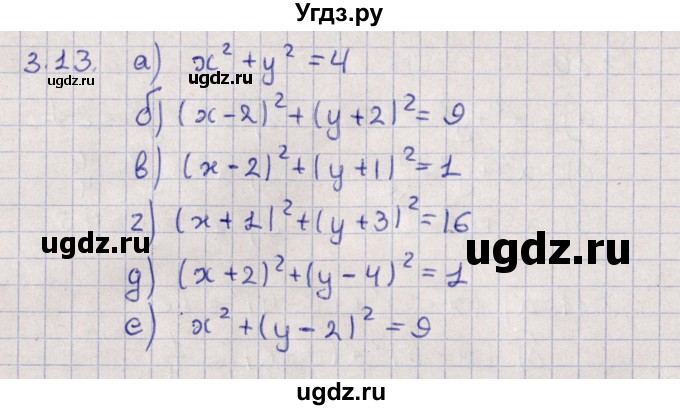 Угдз.ру
3.13. а) x² + y² = 4
ugdz.ru ugdz.ru
б) (x - 2)² + (y + 2)² = 9
в) (x - 2)² + (y + 1)² = 1
г) (x + 1)² + (y + 3)² = 16
ugdz.ru ugdz.ru
д) (x + 2)² + (y - 4)² = 1
е) x² + (y - 2)² = 9
ugdz.ru
ugdz.ru